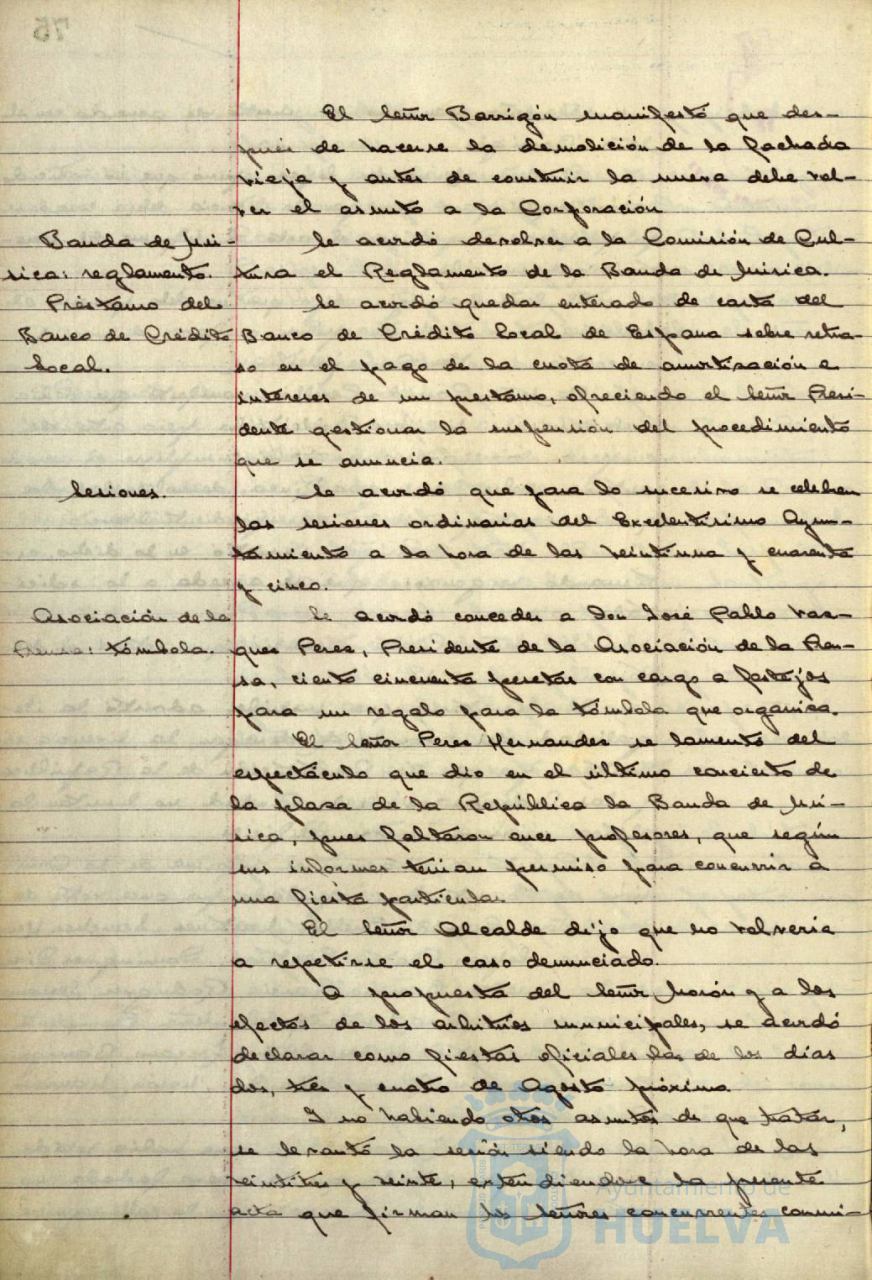 75
El Señor Barrigón manifestó que des-
pués de hacerse la demolición de la fachada
vieja y antes de construir la nueva debe vol-
ver el asunto a la Corporación
Banda de Mú-
sica: reglamento.
Se acordó devolver a la Comisión de Cul-
tura el Reglamento de la Banda de Música.
Préstamo del
Banco de Crédito
Local.
Se acordó quedar enterado de carta del
Banco de Crédito Local de España sobre retra-
so en el pago de la cuota de amortización e
intereses de un prestamo, ofreciendo el Señor Presi-
dente gestionar la suspensión del procedimiento
que se anuncia.
Sesiones.
Se acordó que para lo sucesivo se celebren
las sesiones ordinarias del Excelentísimo Ayun-
tamiento a la hora de las veintiuna y cuarenta
y cinco.
Asociación de la
Prensa: tómbola.
Se acordó conceder a Don José Pablo Vaz-
quez Perez, Presidente de la Asociación de la Pren-
sa, ciento cincuenta pesetas con cargo a festejos
para un regalo para la tómbola que organiza.
El Señor Perez Hernandez se lamentó del
espectáculo que dio en el último concierto de
la plaza de la República la Banda de Mú-
sica, pues faltaron once profesores, que según
sus informes tenian permiso para concurrir a
una fiesta particular.
El Señor Alcalde dijo que no volveria
a repetirse el caso denunciado.
A propuesta del Señor Morón y a los
efectos de los arbitrios municipales, se acordó
declarar como fiestas oficiales las de los dias
dos, tres y cuatro de Agosto próximo.
Y no habiendo otros asuntos de que tratar,
se levantó la sesión siendo la hora de las
veintitres y veinte, extendiendose la presente
acta que firman los Señores concurrentes conmi-
Ayuntamiento de
HUELVA